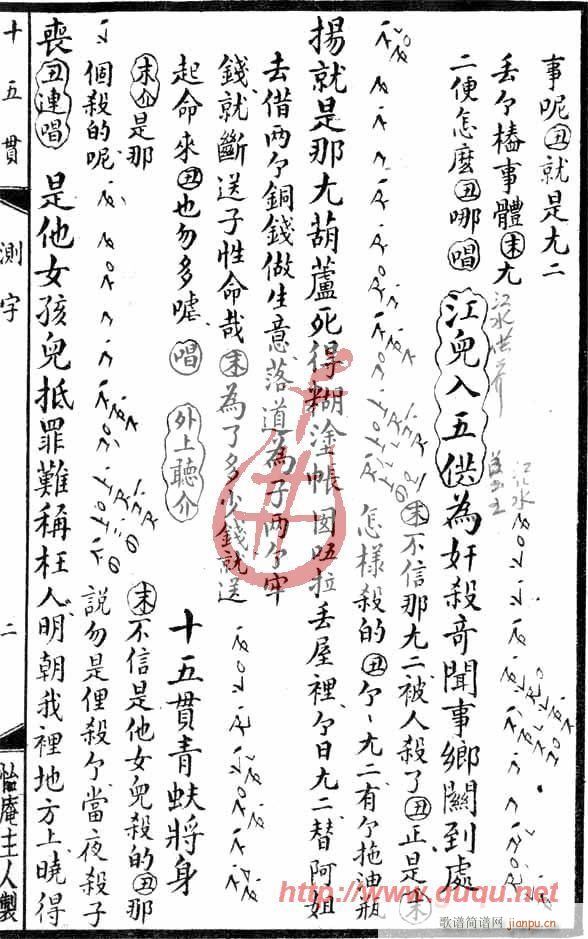 事呢丑就是尤二
丢个樁事體末尤
二便怎麽丑哪唱
江兒入五供為奸殺奇聞事鄉關到處
江水供养
江儿水
末不信那尤二被人殺了丑正是末
怎樣殺的丑个、尤二有个拖油瓶
揚就是那尤葫蘆死得糊塗帳囡唔拉丢屋裡个日尤二替阿姐
去借两个銅錢做生意落道為子两个牢
錢就斷送子性命哉末為了多少錢就送
起命來丑也勿多嘘唱外上聽介
十五貫青蚨將身
末介是那
個殺的呢
末不信是他女兒殺的丑那
說勿是俚殺个當夜殺子
喪丑連唱是他女孩兒抵罪難稱枉人明朝我裡地方上曉得
十五貫
測字
二
怡庵主人製
http://www.guqu.net
歌谱简谱网
jianpu.cn